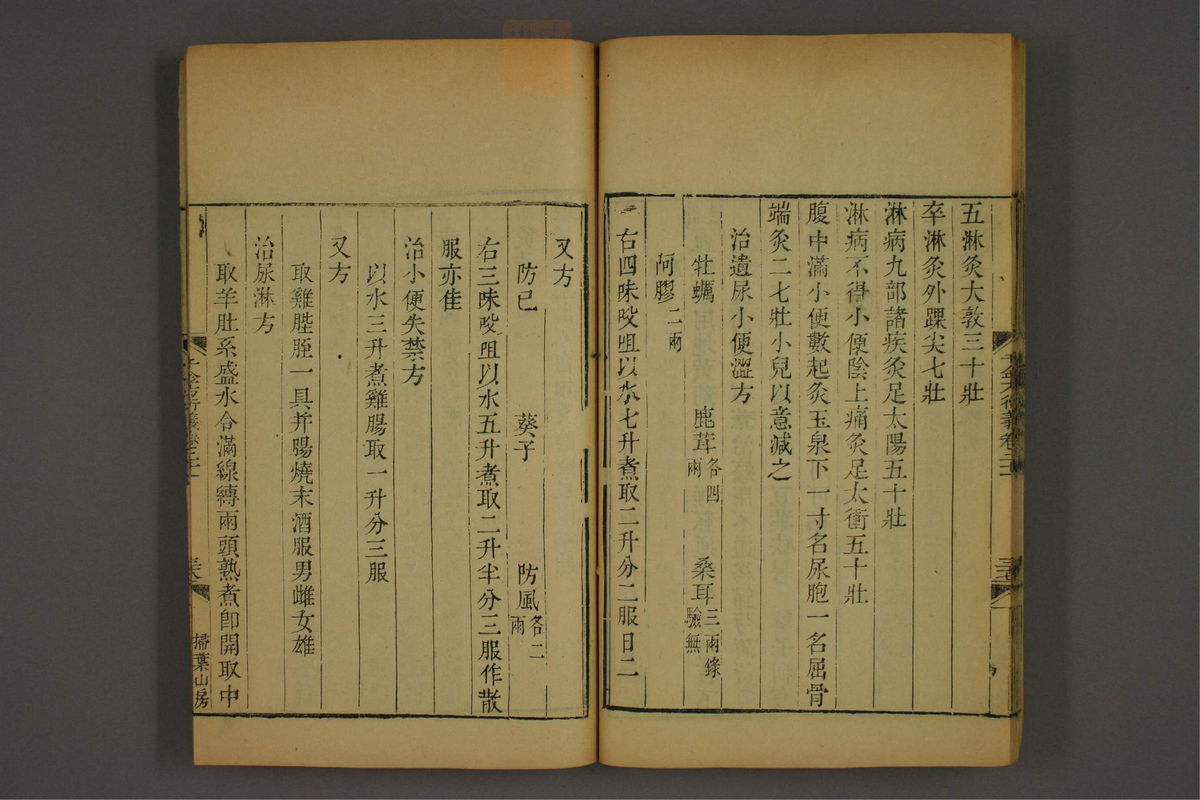 五淋灸大敦三十壯
卒淋灸外踝尖七壯
淋病九部諸疾灸足太陽五十壯
淋病不得小便陰上痛灸足太衝五十壯
腹中滿小便數起灸玉泉下一寸名尿胞一名屈骨
端灸二七壯小兒以意減之
治遺尿小便澀方
牡蠣 鹿茸各四兩 桑耳三兩錄驗無
阿膠二兩
右四味㕮咀以水七升煮取二升分二服日二
又方
防己 葵子 防風各二兩
右三味㕮咀以水五升煮取二升半分三服作散
服亦佳
治小便失禁方
以水三升煮雞腸取一升分三服
又方
取雞䏶胵一具并腸燒末酒服男雌女雄
治尿淋方
取羊肚系盛水令滿線縛兩頭熟煮卽開取中
掃葉山房